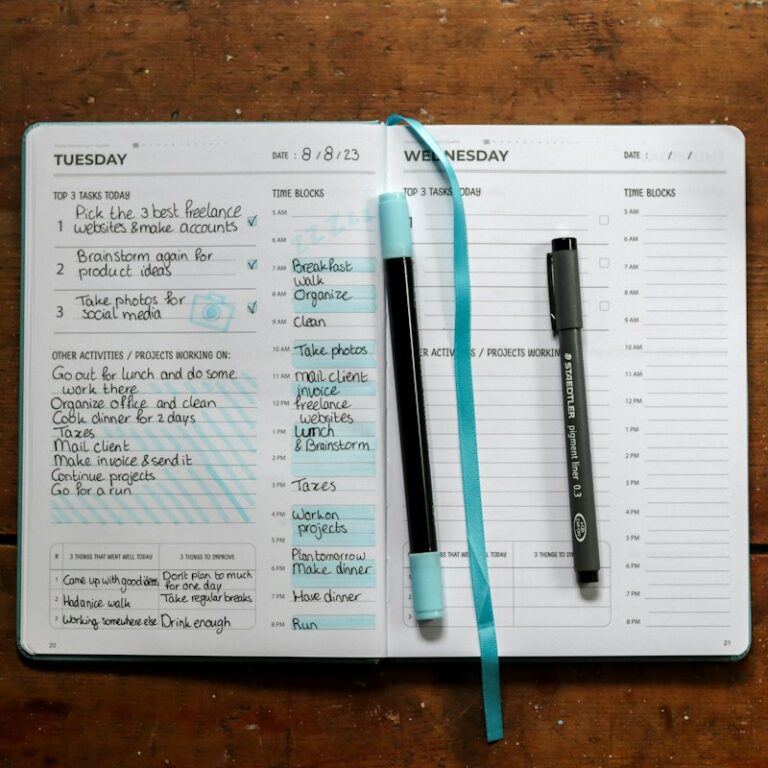 TUESDAY
DATE : 8/8/23
TOP 3 TASKS TODAY
1 Pick the 3 best freelance
websites & make accounts
2 Brainstorm again for
product ideas
3 Take photos for
social media
OTHER ACTIVITIES / PROJECTS WORKING ON:
Go out for lunch and do some
work there
Organize office and clean
Cook dinner for 2 days
Taxes
Mail client
Make invoice & send it
Continue projects
Go for a run
# 3 THINGS THAT WENT WELL TODAY 3 THINGS TO IMPROVE
1 Came up with good ideas Don't plan to much
for one day
2 Had a nice walk Take regular breaks
3 Working somewhere else Drink enough
20
TIME BLOCKS
5 AM
zzzzz
6 AM
7 AM Breakfast
walk
8 AM Organize
9 AM Clean
10 AM Take photos
11 AM Mail client
invoice
12 PM freelance
websites
1 PM Lunch
& Brainstorm
2 PM
3 PM Taxes
4 PM Work on
projects
5 PM
Plan tomorrow
6 PM Make dinner
7 PM Have dinner
8 PM Run
WEDNESDAY
DATE : / /
TOP 3 TASKS TODAY
1
ER ACTIVITIES / PROJECTS WORKING
THAT WENT WELL TODAY 3 THINGS TO
TIME BLOCKS
5 AM
6 AM
7 AM
8 AM
9 AM
10 AM
11 AM
12 PM
1 PM
2 PM
3 PM
4 PM
5 PM
6 PM
7 PM
8 PM
21
STAEDTLER
pigment liner 0.3